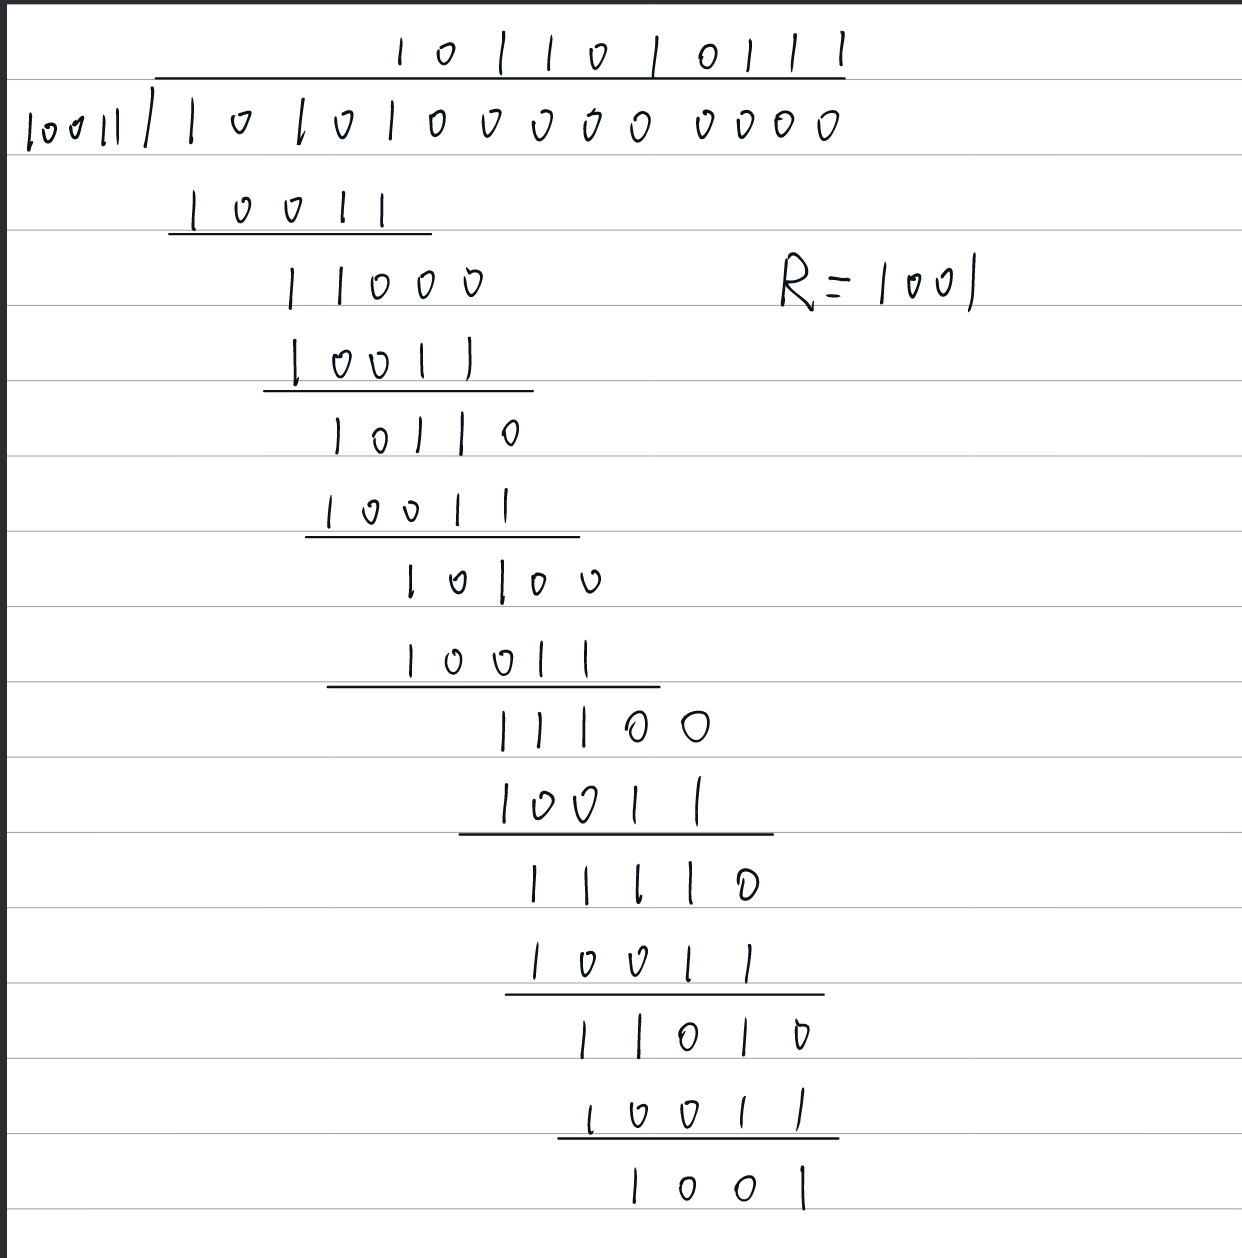 1011010111
10011 / 1010100000 0000
10011
11000 R = 1001
10011
10110
10011
10100
10011
11100
10011
11110
10011
11010
10011
1001